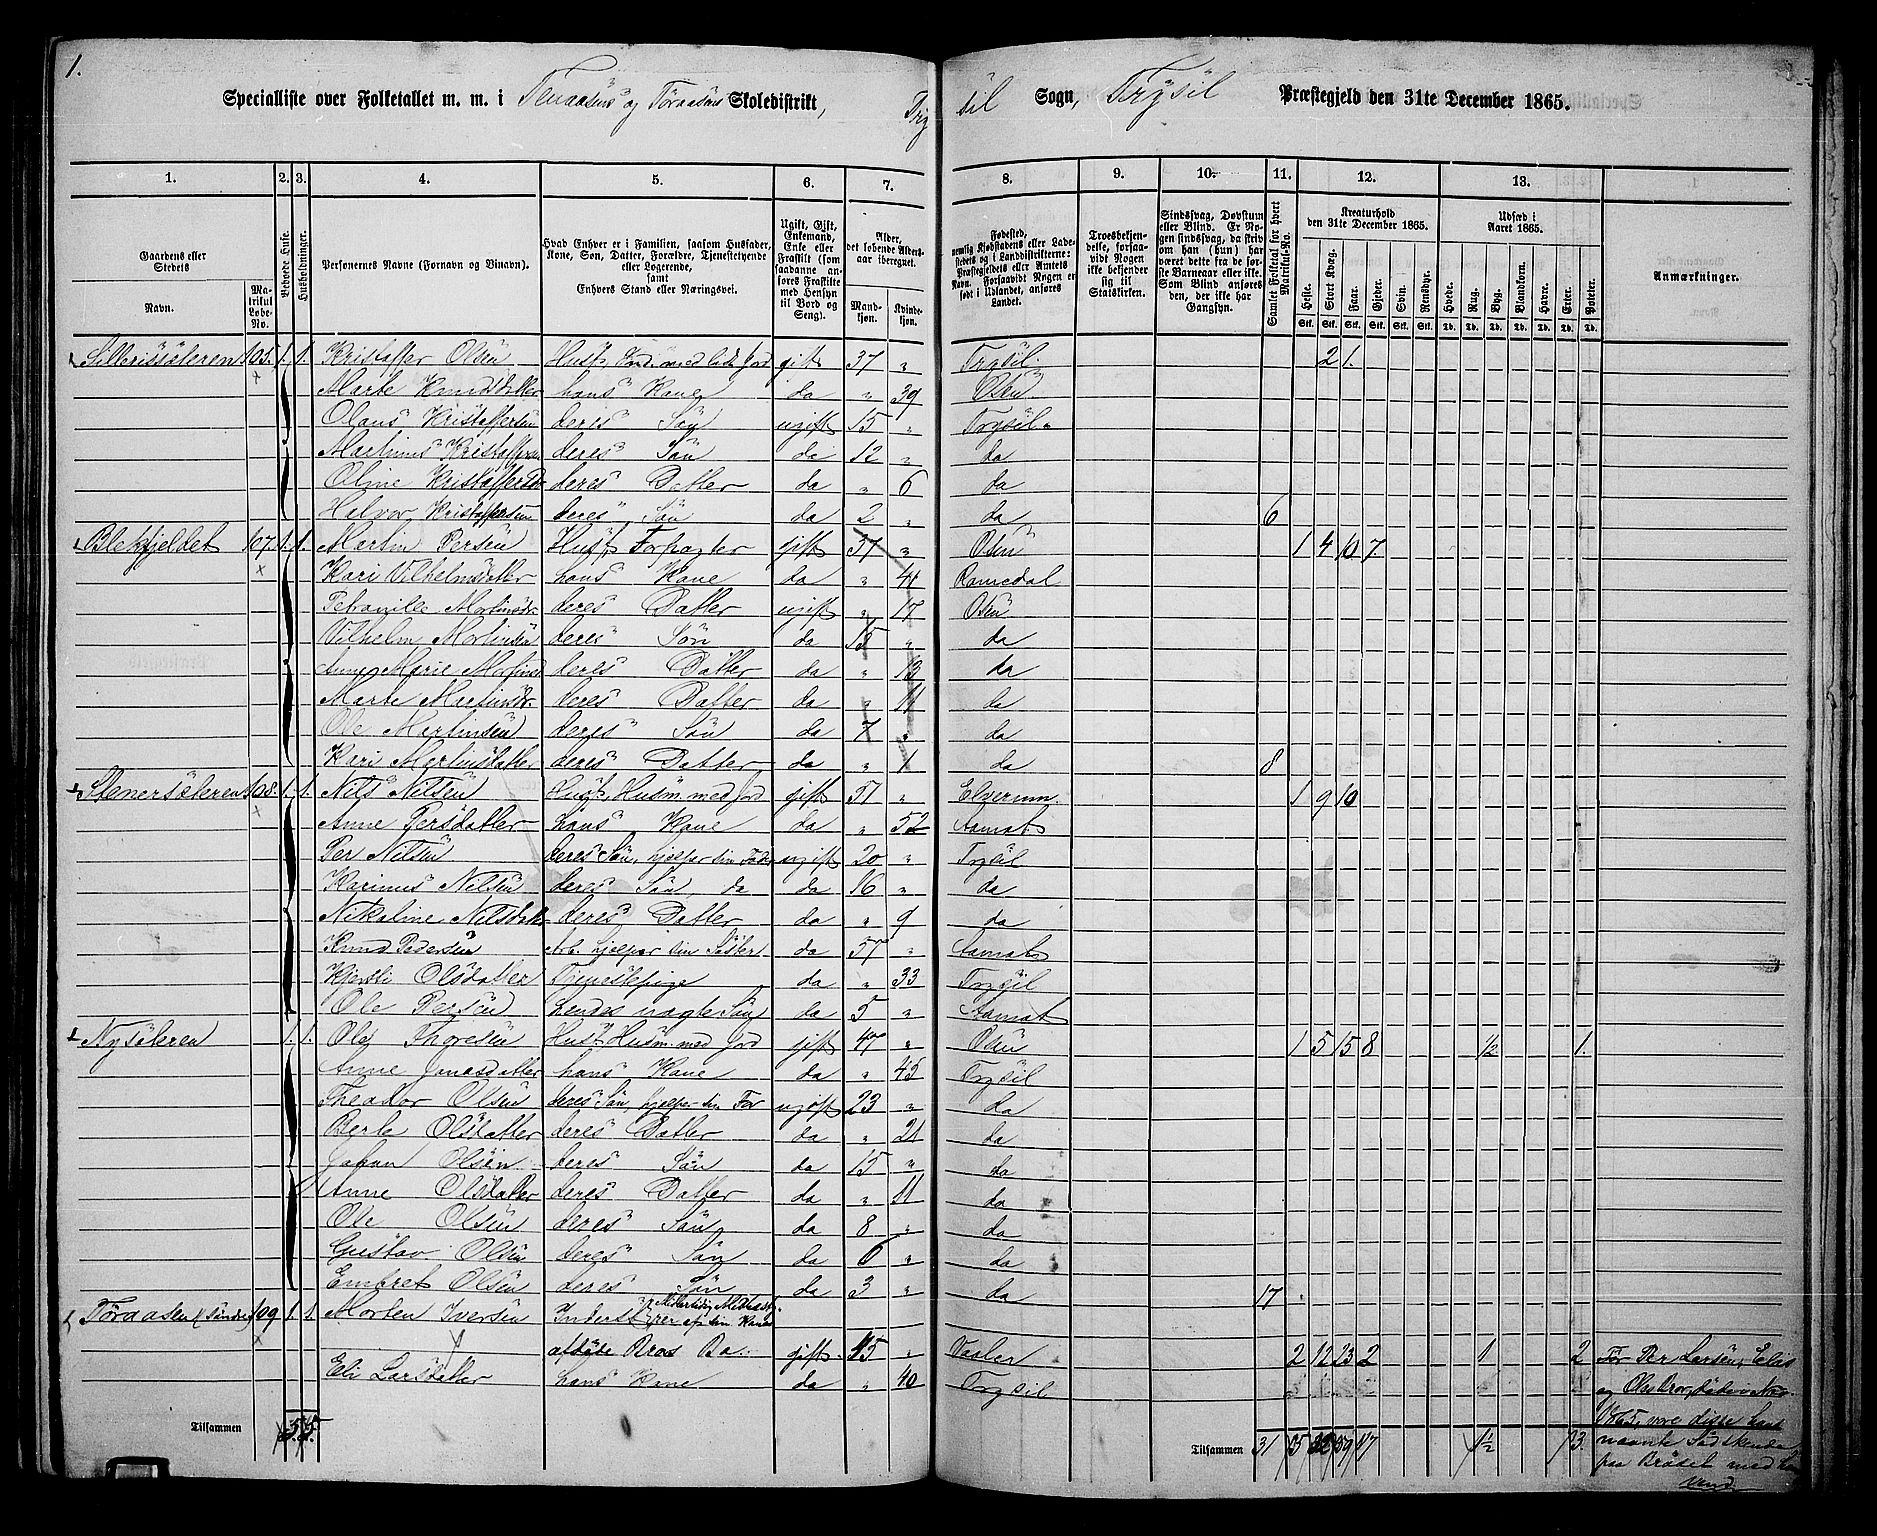 1.
Specialliste over Folketallet m. m. i Tenaasens og Töraasens Skoledistrikt, Trysil Sogn, Trysil Præstegjeld den 31te December 1865.
1. 2. 3. 4. 5. 6. 7. 8. 9. 10. 11. 12. 13.
Gaardens eller Stedets
Navn. Matrikul Løbe-No.
Beboede Huse.
Husholdninger.
Personernes Navne (Fornavn og Vinavn).
Hvad Enhver er i Familien, saasom Husfader, Kone, Søn, Datter, Forældre, Tjenestetyende eller Logerende, samt Enhvers Stand eller Næringsvei.
Ugift, Gift, Enkemand, Enke eller Fraskilt (som saadanne anføres Fraskilte med Hensyn til Bord og Seng).
Alder, det løbende Alders-aar iberegnet.
Mandkjøn. Kvindekjøn.
Fødested, nemlig Kjøbstadens eller Ladestedets og i Landdistrikterne: Præstegjeldets eller Amtets Navn. Forsaavidt Nogen er født i Udlandet, anføres Landet.
Troesbekjendelse, forsaavidt Nogen ikke bekjender sig til Statskirken.
Sindssvag, Døvstum eller Blind. Er Nogen sindssvag, da skriv om han (hun) har været dette fra de første Barneaar eller ikke. Som Blind anføres den, der ikke har Gangsyn.
Samlet Folketal for hvert Matrikul-No.
Kreaturhold den 31te December 1865.
Heste. Stort Kvæg. Faar. Gjeder. Svin. Rensdyr.
Udsæd i Aaret 1865.
Hvede. Rug. Byg. Blandkorn. Havre. Erter. Poteter.
Anmærkninger.
105. 1. 1. Kristoffer Olsen gift 37 " Trysil. 2 1.
Marte Knudsdatter hans Kone da " 39 Osen
Olaus Kristoffersen deres Søn ugift 15 " Trysil
Martinus Kristoffersen deres Søn da 12 " da
Oline Kristoffersd deres Datter da " 6 da
Halvor Kristoffersen deres Søn da 2 " da 6
Blekfjeldet 107. 1. 1. Martin Persen Husf. Forpagter gift 37 " Osen 1 4 10 7.
Kari Vilhelmsdatter hans Kone da " 41 Ramsdal
Petronille Martinsdr. deres Datter ugift " 17 Osen
Vilhelm Martinsen deres Søn da 15 " da
Anne Marie Martinsd deres Datter da " 13 da
Marte Martinsdr. deres Datter da " 11 da
Ole Martinsen deres Søn da 7 " da
Kari Martinsdatter deres Datter da " 1 da 8
Stenersæteren 108. 1. 1. Nils Nilsen Husf., Husm. med Jord gift 51 " Elverum. 1 9 10
Anne Persdatter hans Kone da " 52 Aamot
Per Nilsen deres Søn, hjelper sin Fader ugift 20 " Trysil
Karinus Nilsen deres Søn da da 16 " da
Nikoline Nilsdatter deres Datter da " 9 da
Knud Pedersen Arb. hjelper sin Søster da 57 " Aamot
Kjersti Olsdatter Tjenestepige da " 33 Trysil
Ole Persen hendes uægte Søn da 5 " Aamot
Nysæteren 1. 1. Ole Thoresen Husf. Husm. med Jord gift 47 " Osen 1 5 15 8 ½ 1.
Anne Jonasdatter hans Kone da " 45 Trysil
Theodor Olsen deres Søn, hjelper sin Far ugift 23 " da
Berte Olsdatter deres Datter da " 21 da
Johan Olsen deres Søn da 15 " da
Anne Olsdatter deres Datter da " 11 da
Ole Olsen deres Søn da 8 " da
Gustav Olsen deres Søn da 6 " da
Embret Olsen deres Søn da 3 " da 17
Töraasen (söndre) 109 1. 1. Morten Iversen
afdøde Bros gift 45 " Vaaler 2 12 23 2 1 2
Eli Larsdatter hans Kone da " 40 Trysil
For Per Larsen, Elis
Tilsammen 5 5 Tilsammen 31 5 32 59 17 1½ 3.